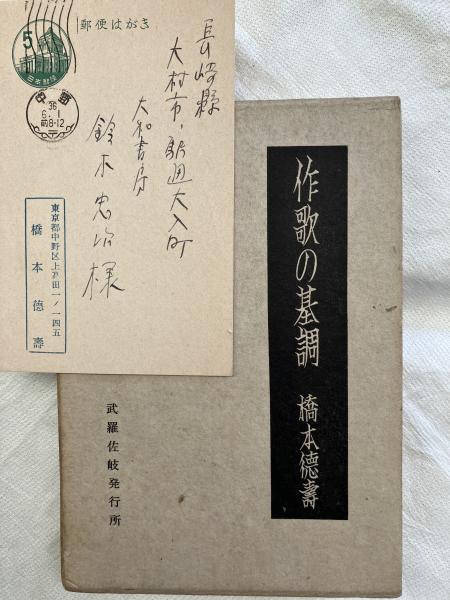 郵便はがき
5
日本郵便
中野
36
6.1
前8-12
長崎縣
大村市・駅通大入町
大和書房
鈴木忠治様
東京都中野区上戸田一ノ一四五
橋本德壽
作歌の基調 橋本德壽
武羅佐岐発行所